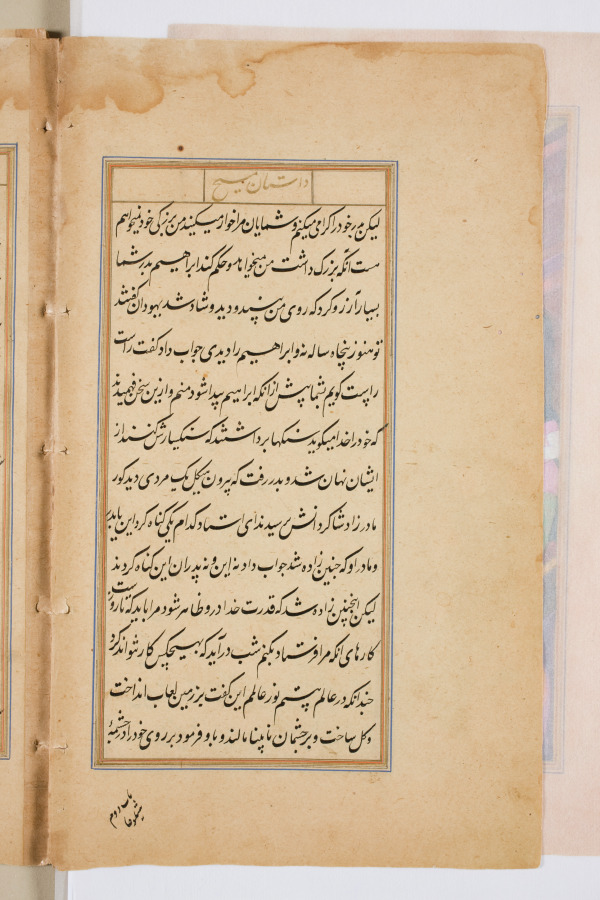 داستان مسیح
لیکن من پدر خود را گرامی میکنم و شمایان مرا خوار میکنید من بزرگی خود نمیخواهم
هست آنکه بزرگ داشت من میخواهد و حکم کند ابراهیم پدر شما
بسیار آرزو کرد که روی من بیند و دید و شاد شد یهودان گفتند
تو هنوز پنجاه ساله نه و ابراهیم را دیدی جواب داد گفت راست
راست گویم بشما پیش از آنکه ابراهیم پیدا شود منم و ازین سخن فهمیدند
که خود را خدا میگوید سنگها برداشتند که سنگسارش کنند از
ایشان نهان شد و بدر رفت که بیرون هیکل یک مردی دید کور
مادرزاد شاگردانش پرسیدند ای استاد کدام یکی گناه کرد این یا پدر
و مادر او که چنین زاده شد جواب داد نه این و نه پدران این گناه کردند
لیکن اینچنین زاده شد که قدرت خدا درو ظاهر شود مرا باید که تا روز است
کارهای آنکه مرا فرستاد بکنم شب درآید که هیچکس کار نتواند کرد
چندانکه در عالم هستم نور عالمم این گفت بر زمین لعاب انداخت
و گل ساخت و بر چشمان نابینا مالند و باو فرمود برو روی خود را در چشمهٔ
باب دوم